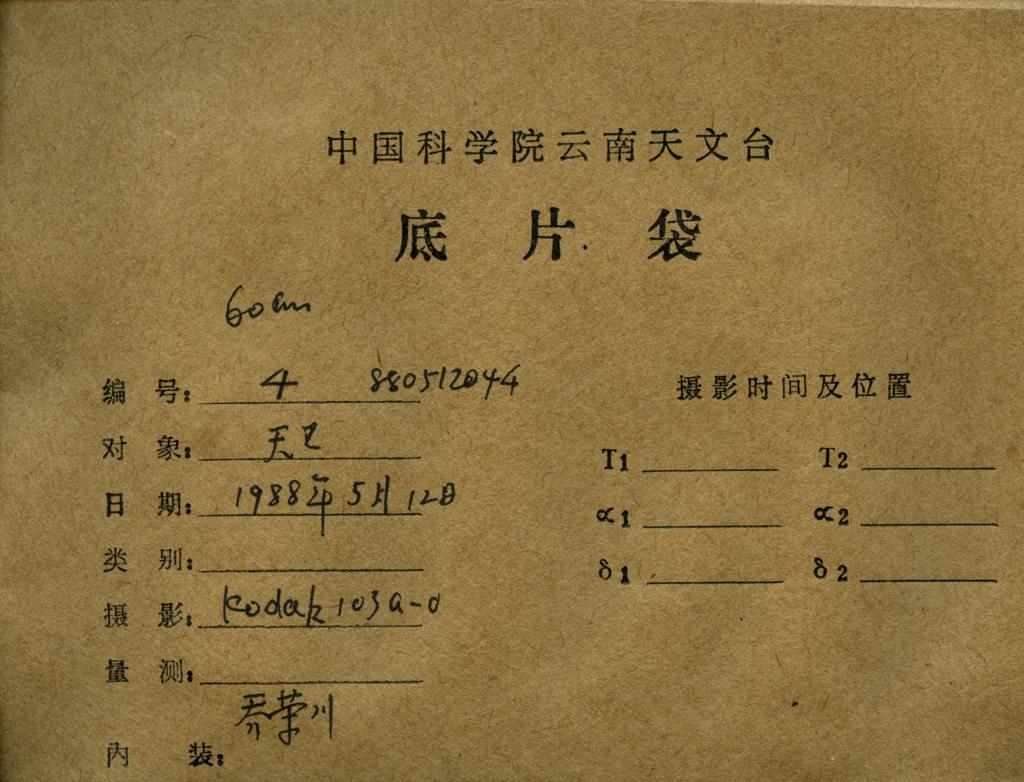 中国科学院云南天文台
底片袋
60cm
编号: 4 880512044
摄影时间及位置
对象: 天卫
T1 T2
日期: 1988年5月12日
α1 α2
类别:
δ1 δ2
摄影: Kodak 103a-O
量测:
乔荣川
内装: